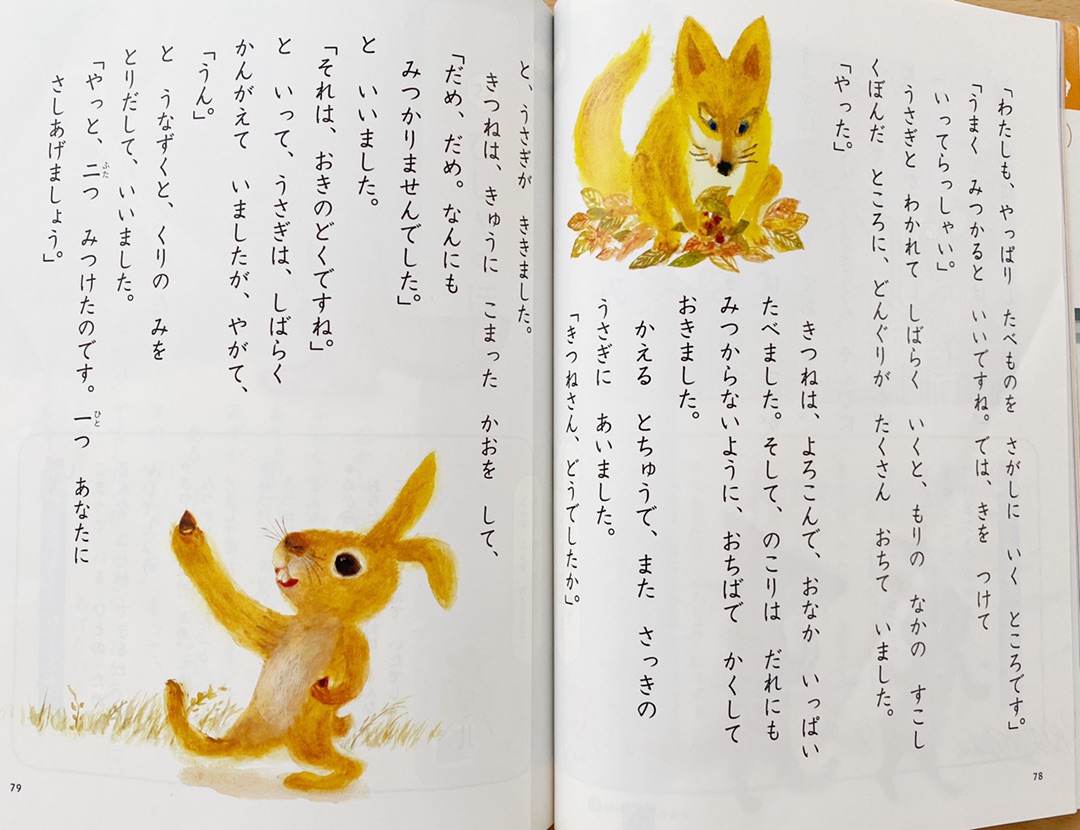 「わたしも、やっぱり たべものを さがしに いく ところです。」
「うまく みつかると いいですね。では、きを つけて
いってらっしゃい。」
うさぎと わかれて しばらく いくと、もりの なかの すこし
くぼんだ ところに、どんぐりが たくさん おちて いました。
「やった。」
きつねは、よろこんで、おなか いっぱい
たべました。そして、のこりは だれにも
みつからないように、おちばで かくして
おきました。
かえる とちゅうで、また さっきの
うさぎに あいました。
「きつねさん、どうでしたか。」
78
と、うさぎが ききました。
きつねは、きゅうに こまった かおを して、
「だめ、だめ。なんにも
みつかりませんでした。」
と いいました。
「それは、おきのどくですね。」
と いって、うさぎは、しばらく
かんがえて いましたが、やがて、
「うん。」
と うなずくと、くりの みを
とりだして、いいました。
「やっと、二つ みつけたのです。一つ あなたに
ふた
ひと
さしあげましょう。」
79